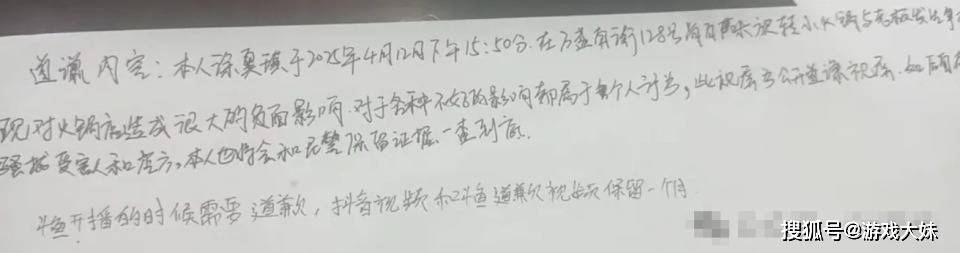 道谦内容：本人涂昊祺于2025年4月12日下午15:50分.在万盛南街128号 旋转小火锅与老板发生争
现对火锅店造成很大的负面影响.对于各种不好的影响都属于 个人行为，此视屏为公开道谦视屏.如后
骚扰受害人和店方，本人也将会和民警保留证据一查到底.
斗鱼开播的时候需要道歉，抖音视频和斗鱼道歉视频保留一个月
搜狐号@游戏大妹